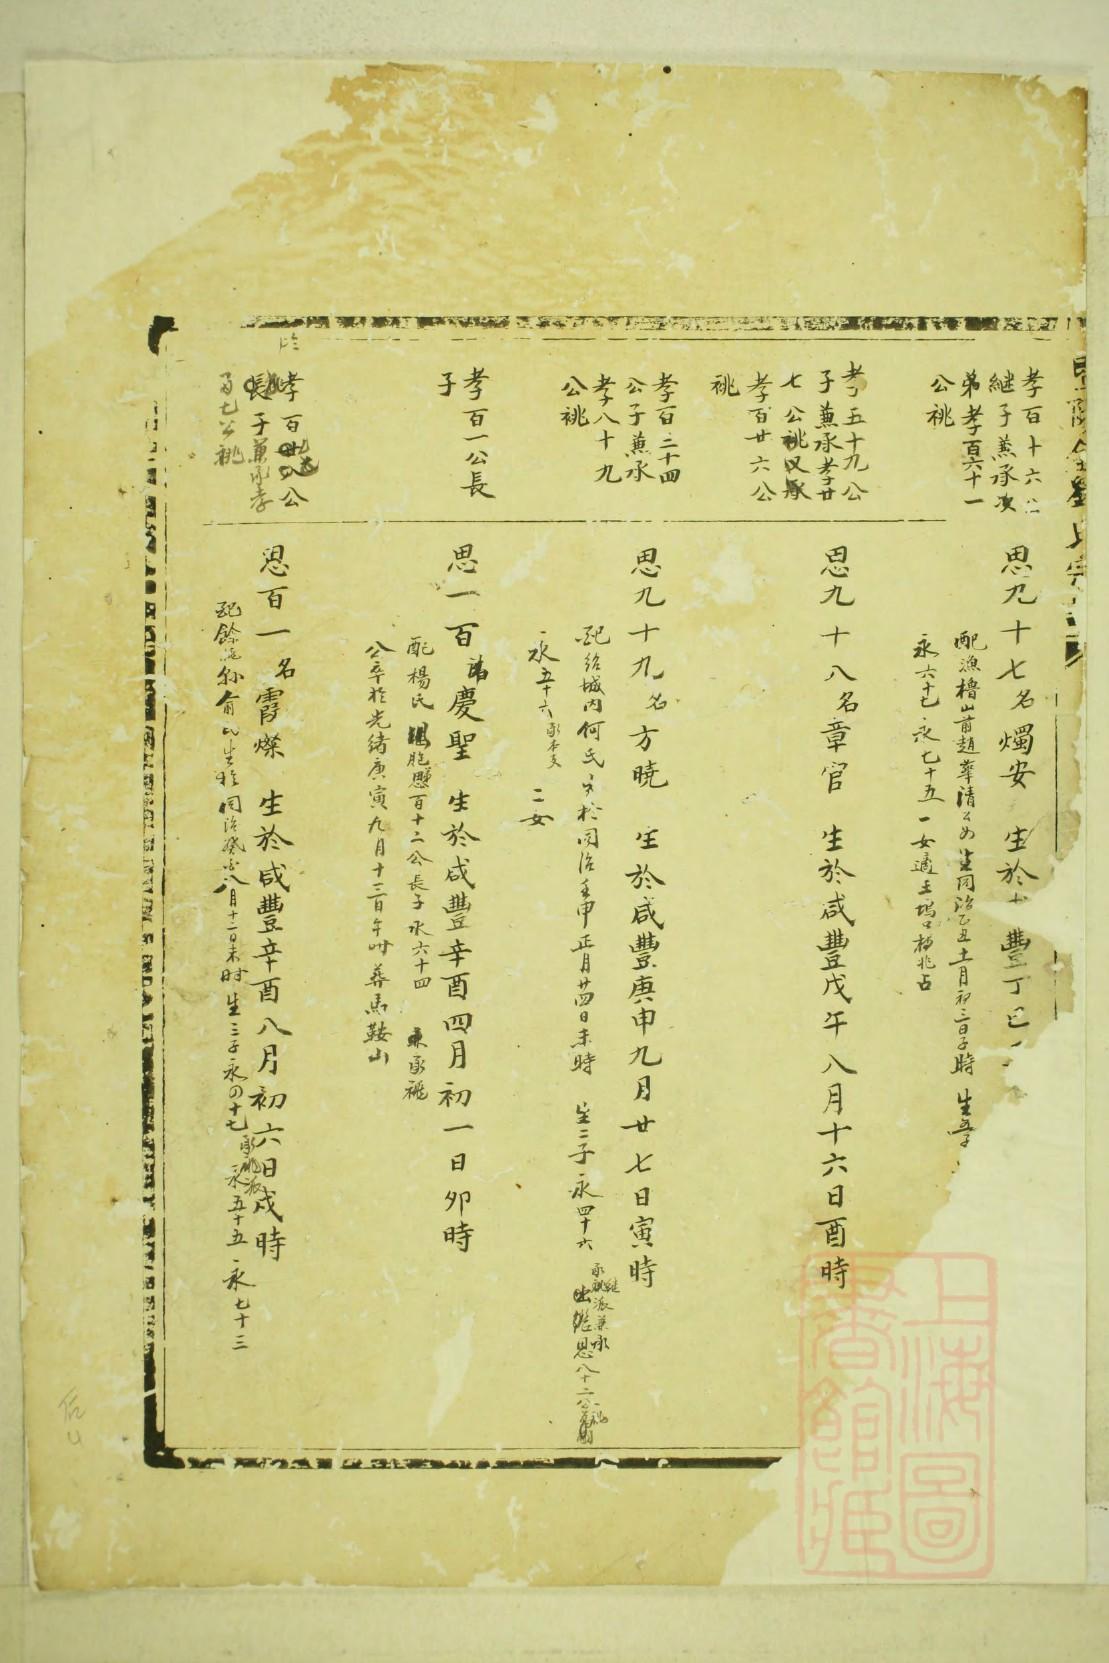 孝百十六公
継子兼承次
弟孝百六十一
公祧
思九十七名燭安 生於 豐丁巳
配漁櫓山前趙華清公女生同治乙丑十一月初三日子時 生
永六十七 永七十五 一女適王塢口楊兆占
孝五十九公
子兼承孝廿
七公祧又承
孝百廿六公
祧
思九十八名章官 生於咸豐戊午八月十六日酉時
孝百二十四
公子兼承
孝八十九
公祧
思九十九名方曉 生於咸豐庚申九月廿七日寅時
配紹城内何氏 生於同治壬申正月廿四日未時 生二子 永四十六 出繼思八十二公
承祧派兼承
永五十六 承本支 二女
孝百一公長
子
思一百諱慶聖 生於咸豐辛酉四月初一日卯時
配楊氏 胞 思百十二公長子永六十四 承祧
公卒於光緒庚寅九月十三日午時 葬馬鞍山
孝百 公
長子兼承孝
百七公祧
思百一名霄燦 生於咸豐辛酉八月初六日戌時
配餘 孫俞氏生於同治癸 八月十二日未時 生三子永四十七 承祧派 永五十五 永七十三
上海圖
書館藏